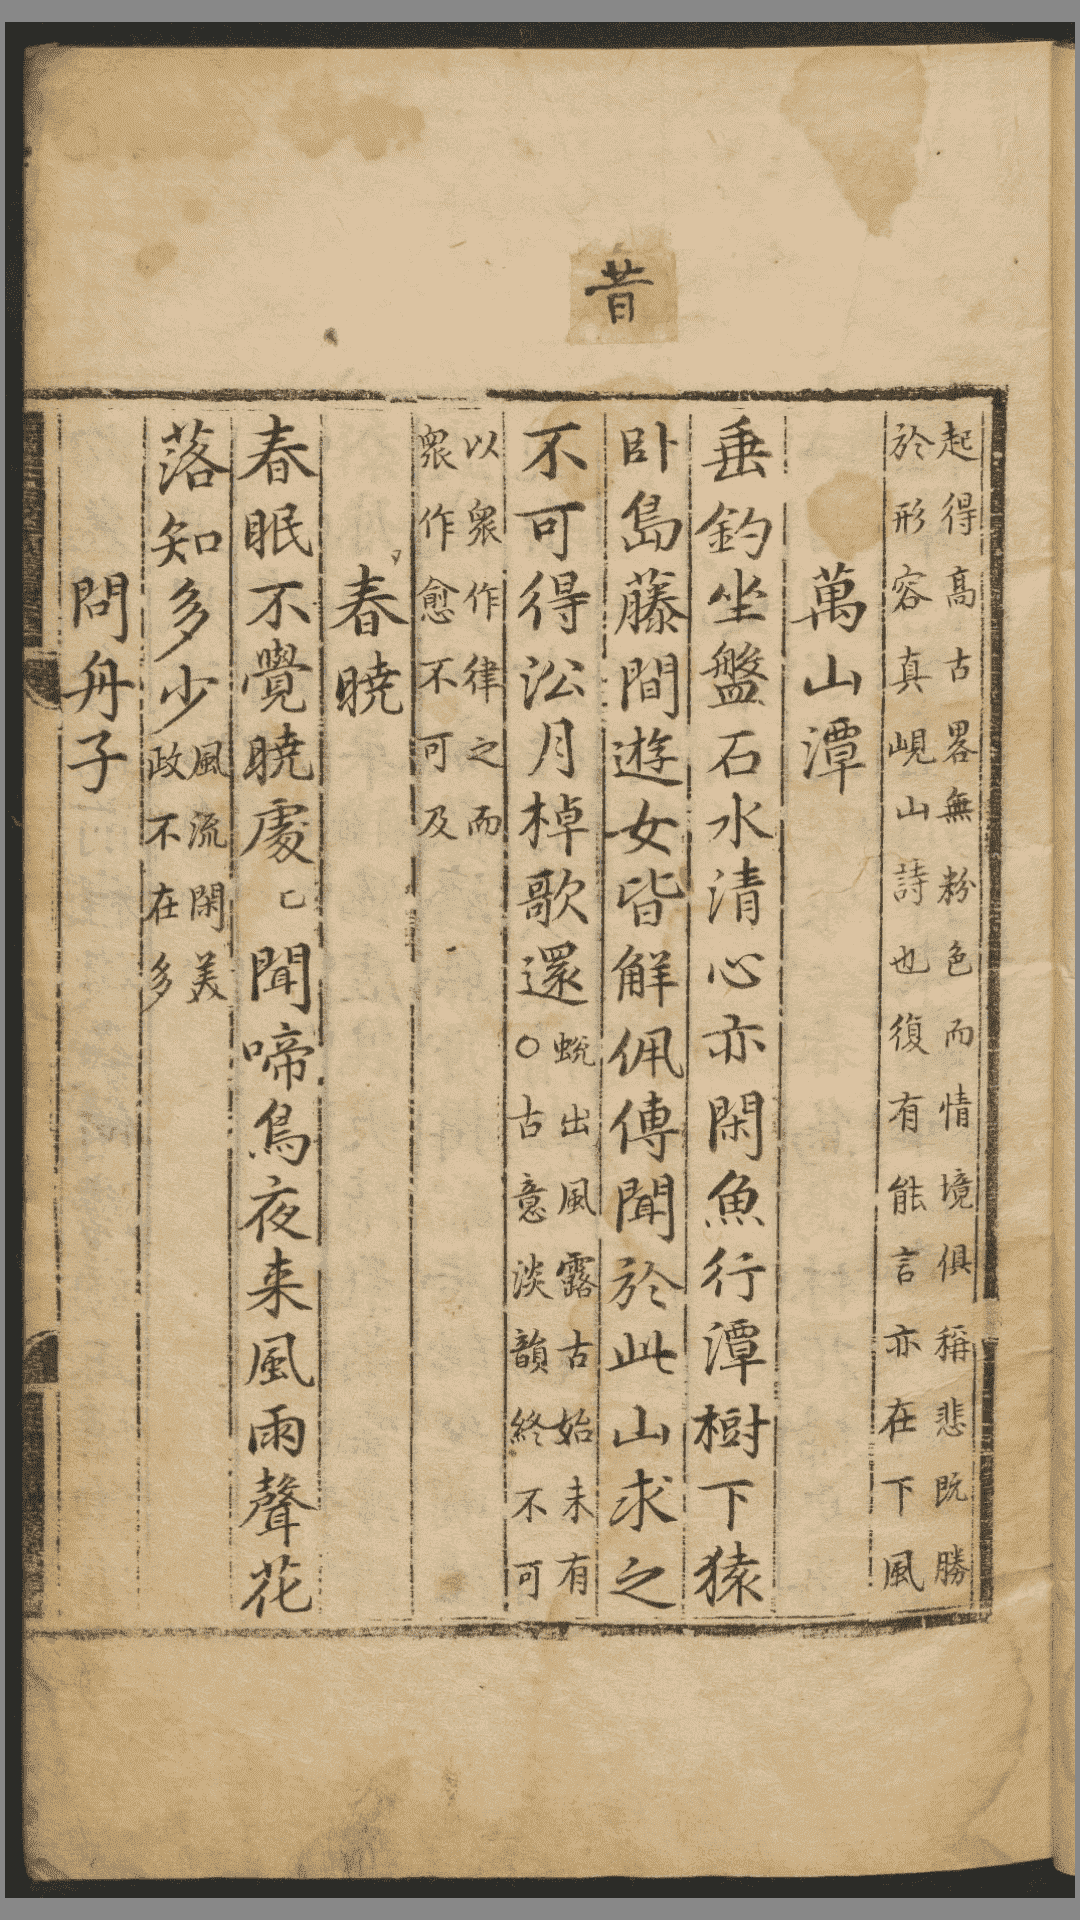 昔
起得高古畧無粉色而情境俱稱悲既勝
於形容真峴山詩也復有能言亦在下風
萬山潭
垂釣坐盤石水清心亦閑魚行潭樹下猿
卧島藤間遊女皆解佩傳聞於此山求之
不可得㳂月棹歌還
蛻出風露古始未有
○古意淡韻終不可
以衆作律之而
衆作愈不可及
春曉
春眠不覺曉處〻聞啼鳥夜来風雨聲花
落知多少
風流閑美
政不在多
問舟子